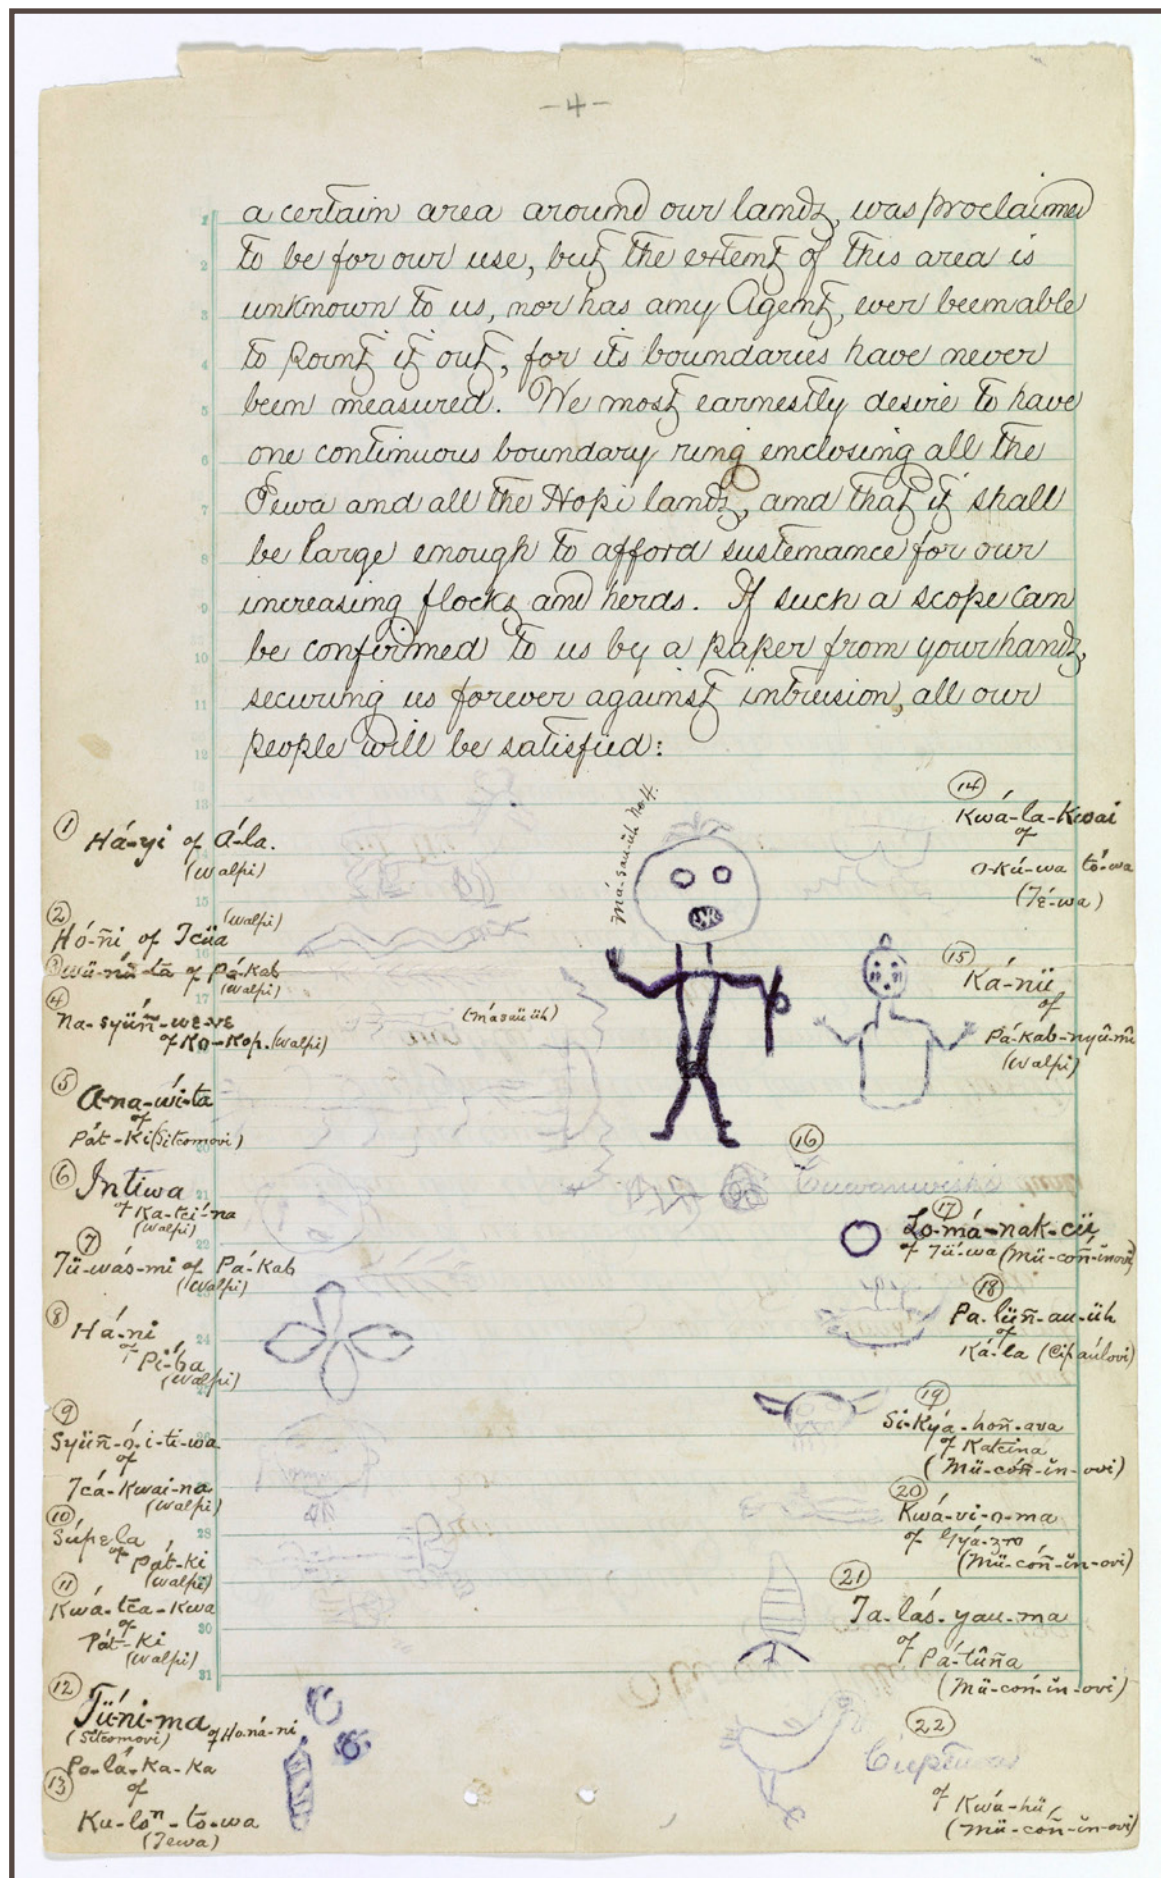 -4-
a certain area around our lands, was proclaimed
to be for our use, but the extent of this area is
unknown to us, nor has any Agent, ever been able
to point it out, for its boundaries have never
been measured. We most earnestly desire to have
one continuous boundary ring enclosing all the
Tewa and all the Hopi lands, and that it shall
be large enough to afford sustenance for our
increasing flocks and herds. If such a scope can
be confirmed to us by a paper from your hands,
securing us forever against intrusion, all our
people will be satisfied:
1
2
3
4
5
6
7
8
9
10
11
12
13
15
17
21
22
24
28
30
31
① Há-yi of Á-la.
(Walpi)
② (Walpi)
Hó-ñi of Tcüa
③ Wü-nú-ta of Pá-kab
(Walpi)
④ Na-syüñ-we-ve
of Ko-Kop. (Walpi)
⑤ A-na-wí-ta
of
Pát-Ki (Sitcomovi)
⑥ Intiwa
of Ka-tcí-na
(Walpi)
⑦
Tü-wás-mi of Pá-Kab
(Walpi)
⑧ Há-ni
of Pí-ba
(Walpi)
⑨
Syüñ-ó-i-ti-wa
of
Tcá-Kwai-na
(Walpi)
⑩
Súpela
of Pát-ki
(Walpi)
⑪
Kwá-tca-Kwa
of
Pát-Ki
(Walpi)
⑫
Tü-ni-ma of Ho-ná-ni
(Sitcomovi)
Po-lá-Ka-Ka
⑬ of
Ku-loⁿ-to-wa
(Tewa)
Má-sau-üh No 4.
(Másaüüh)
⑭
Kwá-la-Kwai
of
O-Kú-wa tó-wa
(Té-wa)
⑮
Ká-nü
of
Pá-Kab-nyû-mû
(Walpi)
⑯
⑰
Lo-má-nak-cü
of Tü-wa (Mü-coñ-ĭnovi)
⑱
Pa-lüñ-au-üh
of
Ká-la (Cipaúlovi)
⑲
Si-Kyá-hoñ-ava
of Katcina
(Mü-cóñ-ĭn-ovi)
⑳
Kwá-vi-o-ma
of
(Mü-cóñ-ĭn-ovi)
㉑
Ta-lás-yau-ma
of Pá-tûña
(Mü-coñ-ĭn-ovi)
㉒
of Kwá-hü,
(Mü-coñ-ĭn-ovi)